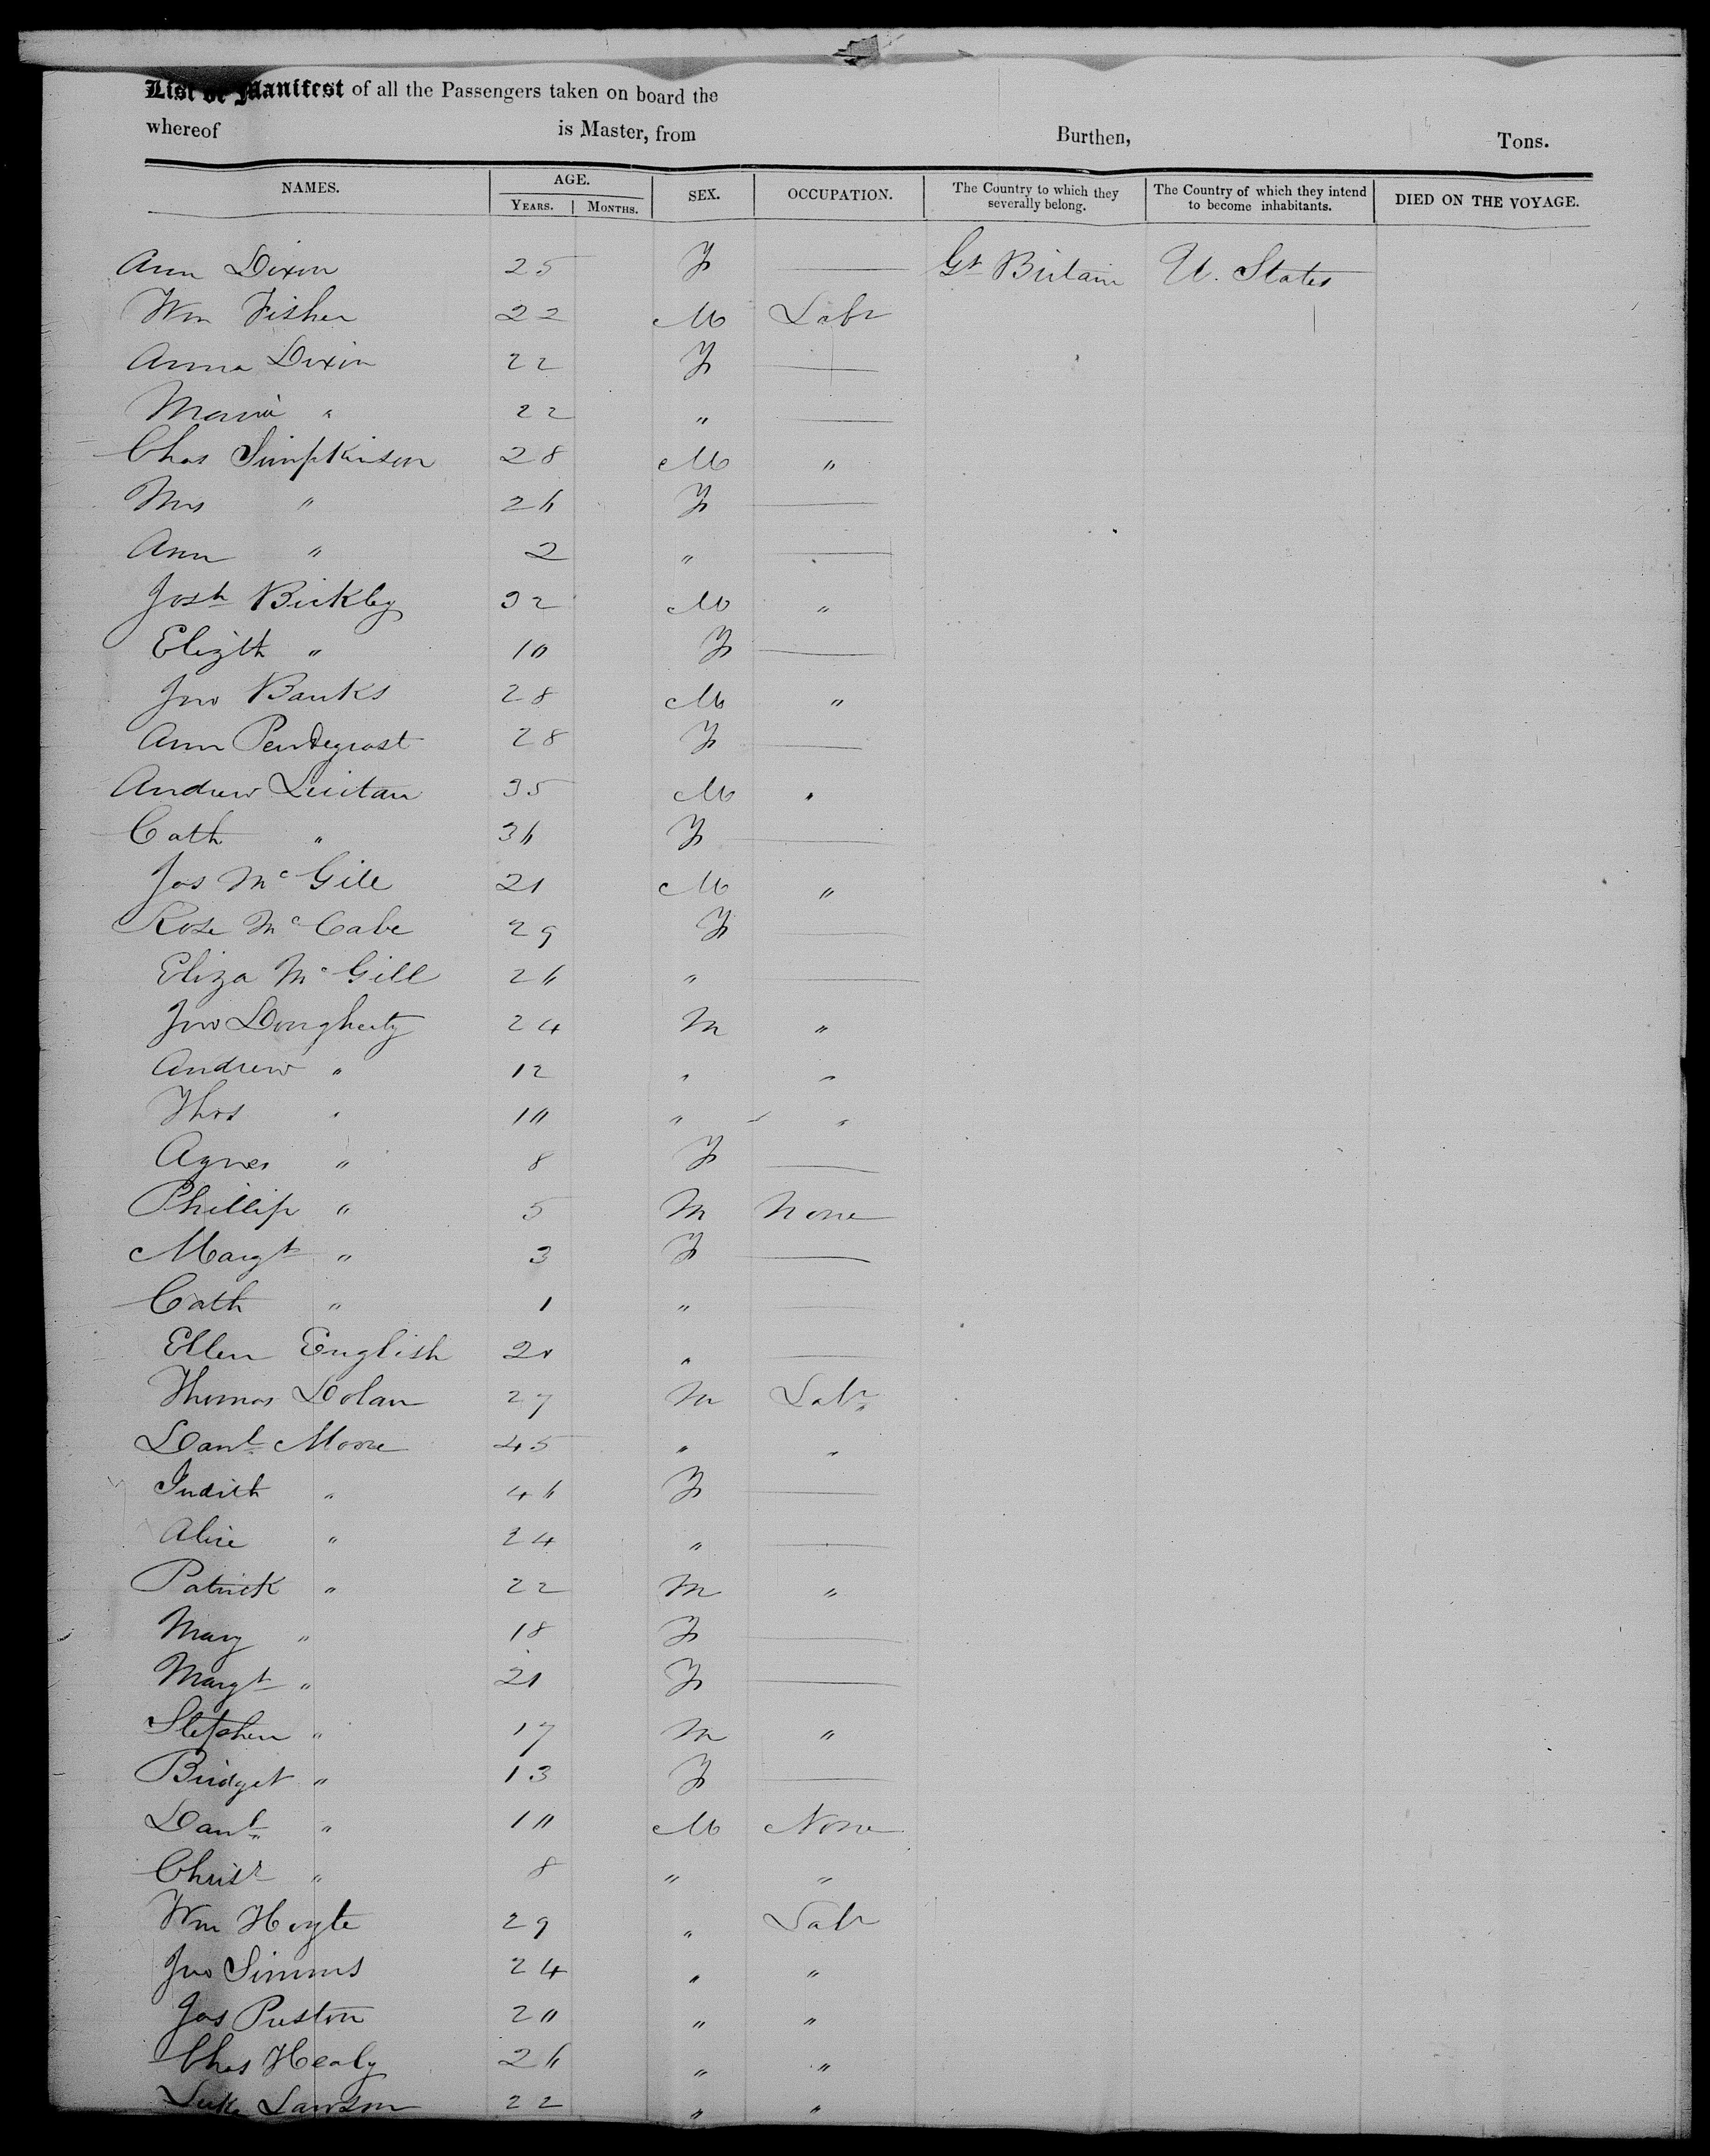 List or Manifest of all the Passengers taken on board the
whereof is Master, from Burthen, Tons.
NAMES. AGE. YEARS. MONTHS. SEX. OCCUPATION. The Country to which they severally belong. The Country of which they intend to become inhabitants. DIED ON THE VOYAGE.
Ann Dixon 25 F — Gt Britain U. States
Wm Fisher 22 M Labr
Anna Dixin 22 F —
Maria " 22 " —
Chas Simpkinson 28 M "
Mrs " 26 F —
Ann " 2 " —
Josh Bickley 32 M "
Elizth " 10 F —
Jno Banks 28 M "
Ann Pendegrast 28 F —
Andrew 35 M "
Cath " 36 F —
Jas McGill 21 M "
Rose McCabe 29 F —
Eliza McGill 26 " —
Jno Dougherty 24 M "
Andrew " 12 " "
Thos " 10 " "
Agnes " 8 F —
Phillip " 5 M None
Margt " 3 F —
Cath " 1 " —
Ellen English 20 " —
Thomas Dolan 27 M Labr
Danl Moore 45 " "
Judith " 46 F —
Alice " 24 " —
Patrick " 22 M "
Mary " 18 F —
Margt " 21 F —
Stephen " 17 M "
Bridget " 13 F —
Danl " 10 M None
Christr " 8 " "
Wm Hoyte 29 " Labr
Jno Simms 24 " "
Jas Preston 20 " "
Chas Healy 26 " "
Luke Lawson 22 " "